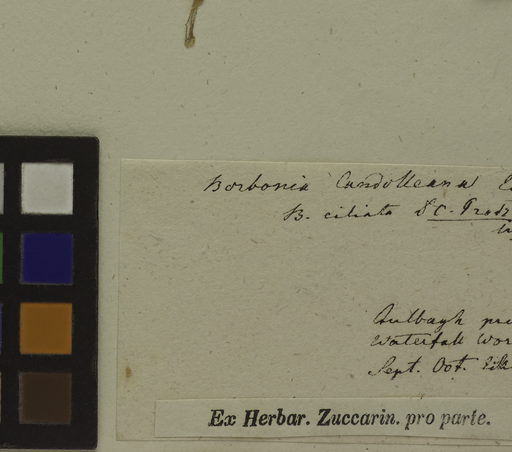 Borbonia Candolleana
B. ciliata DC. Prodr
Tulbagh
Waterfall
Sept. Oct.
Ex Herbar. Zuccarin. pro parte.